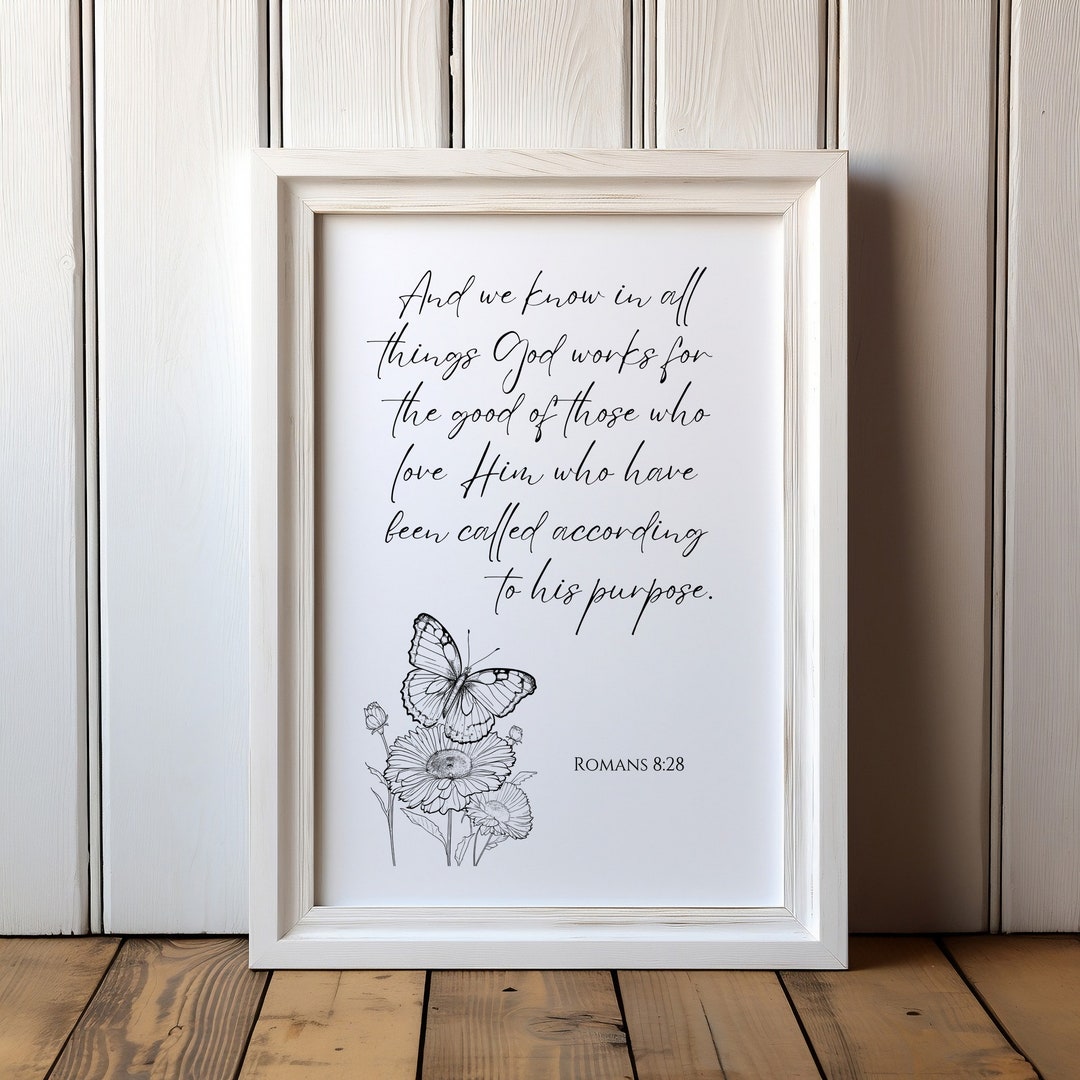 And we know in all
things God works for
the good of those who
love Him who have
been called according
to his purpose.
Romans 8:28